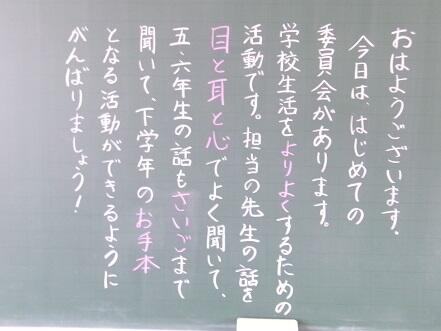 おはようございます。
今日は、はじめての
委員会があります。
学校生活をよりよくするための
活動です。担当の先生の話を
目と耳と心でよく聞いて、
五、六年生の話もさいごまで
聞いて、下学年のお手本
となる活動ができるように
がんばりましょう!